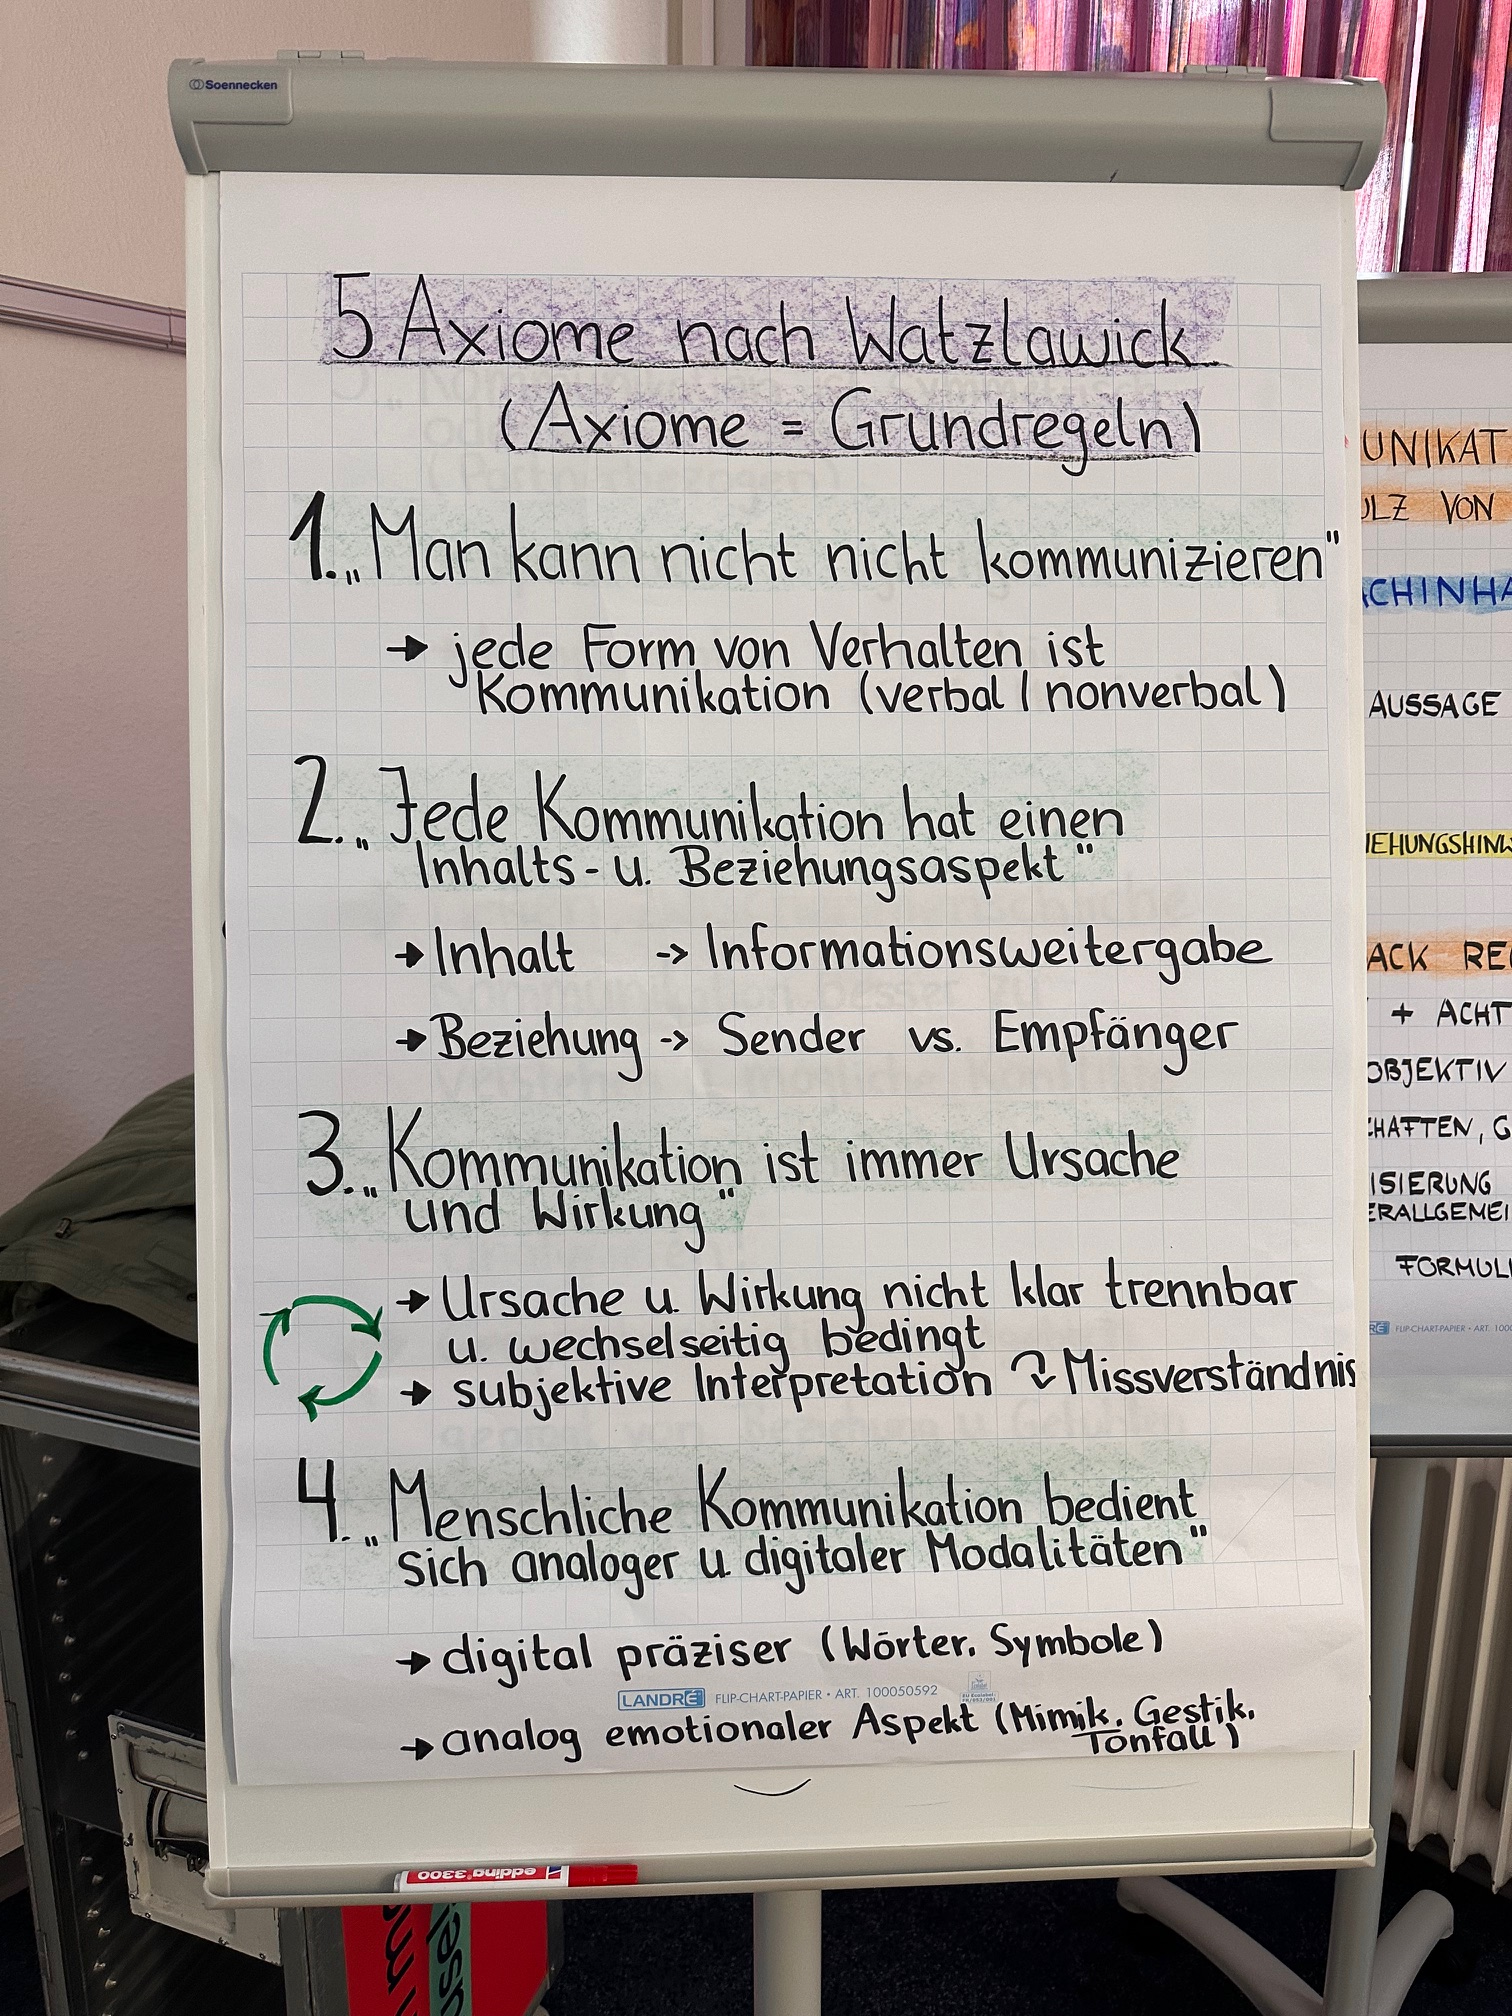 Soennecken
5 Axiome nach Watzlawick
(Axiome = Grundregeln)
1. „Man kann nicht nicht kommunizieren"
→ jede Form von Verhalten ist
Kommunikation (verbal / nonverbal)
2. „Jede Kommunikation hat einen
Inhalts- u. Beziehungsaspekt"
→ Inhalt -> Informationsweitergabe
→ Beziehung -> Sender vs. Empfänger
3. „Kommunikation ist immer Ursache
und Wirkung"
→ Ursache u. Wirkung nicht klar trennbar
u. wechselseitig bedingt
→ subjektive Interpretation Missverständnis
4. „Menschliche Kommunikation bedient
sich analoger u. digitaler Modalitäten"
→ digital präziser (Wörter, Symbole)
LANDRÉ FLIP-CHART-PAPIER • ART. 100050592
→ analog emotionaler Aspekt (Mimik, Gestik,
Tonfall)
edding 3300
UNIKAT
LZ VON
CHINHA
AUSSAGE
IEHUNGSHINW
ACK RE
+ ACHT
OBJEKTIV
HAFTEN, G
ISIERUNG
ERALLGEMEI
FORMUL
FLIP-CHART-PAPIER • ART. 100